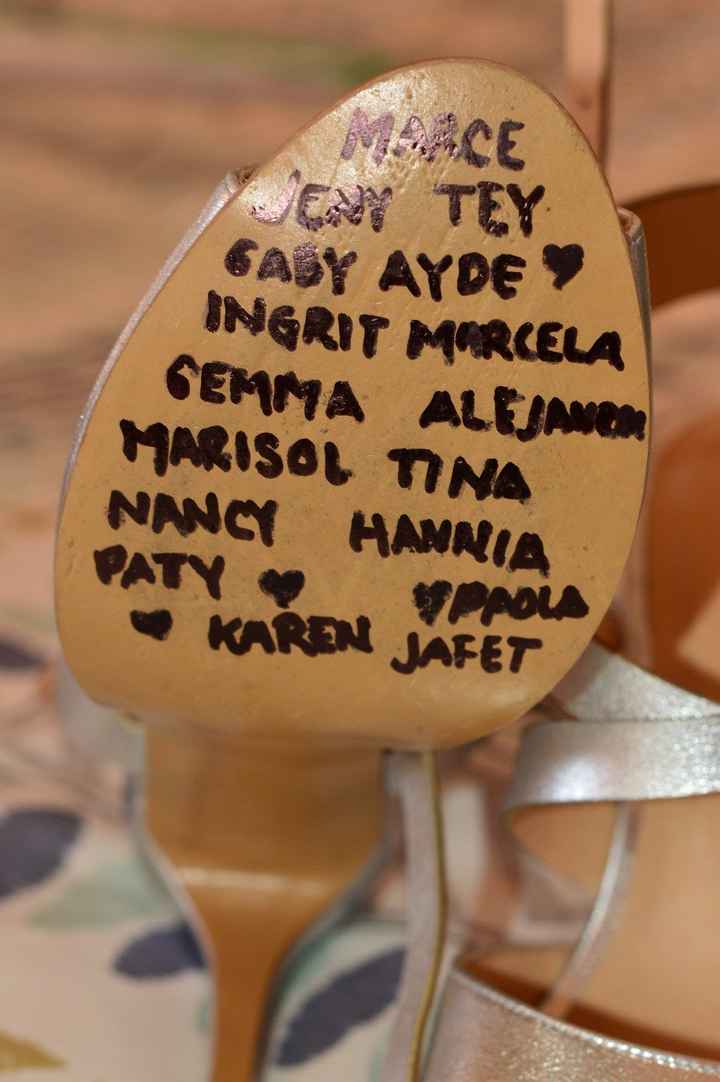 MARCE
JENY TEY
GABY AYDE ♥
INGRIT MARCELA
GEMMA ALEJANDRA
MARISOL TINA
NANCY HANNIA
PATY ♥ ♥ PAOLA
♥ KAREN JAFET